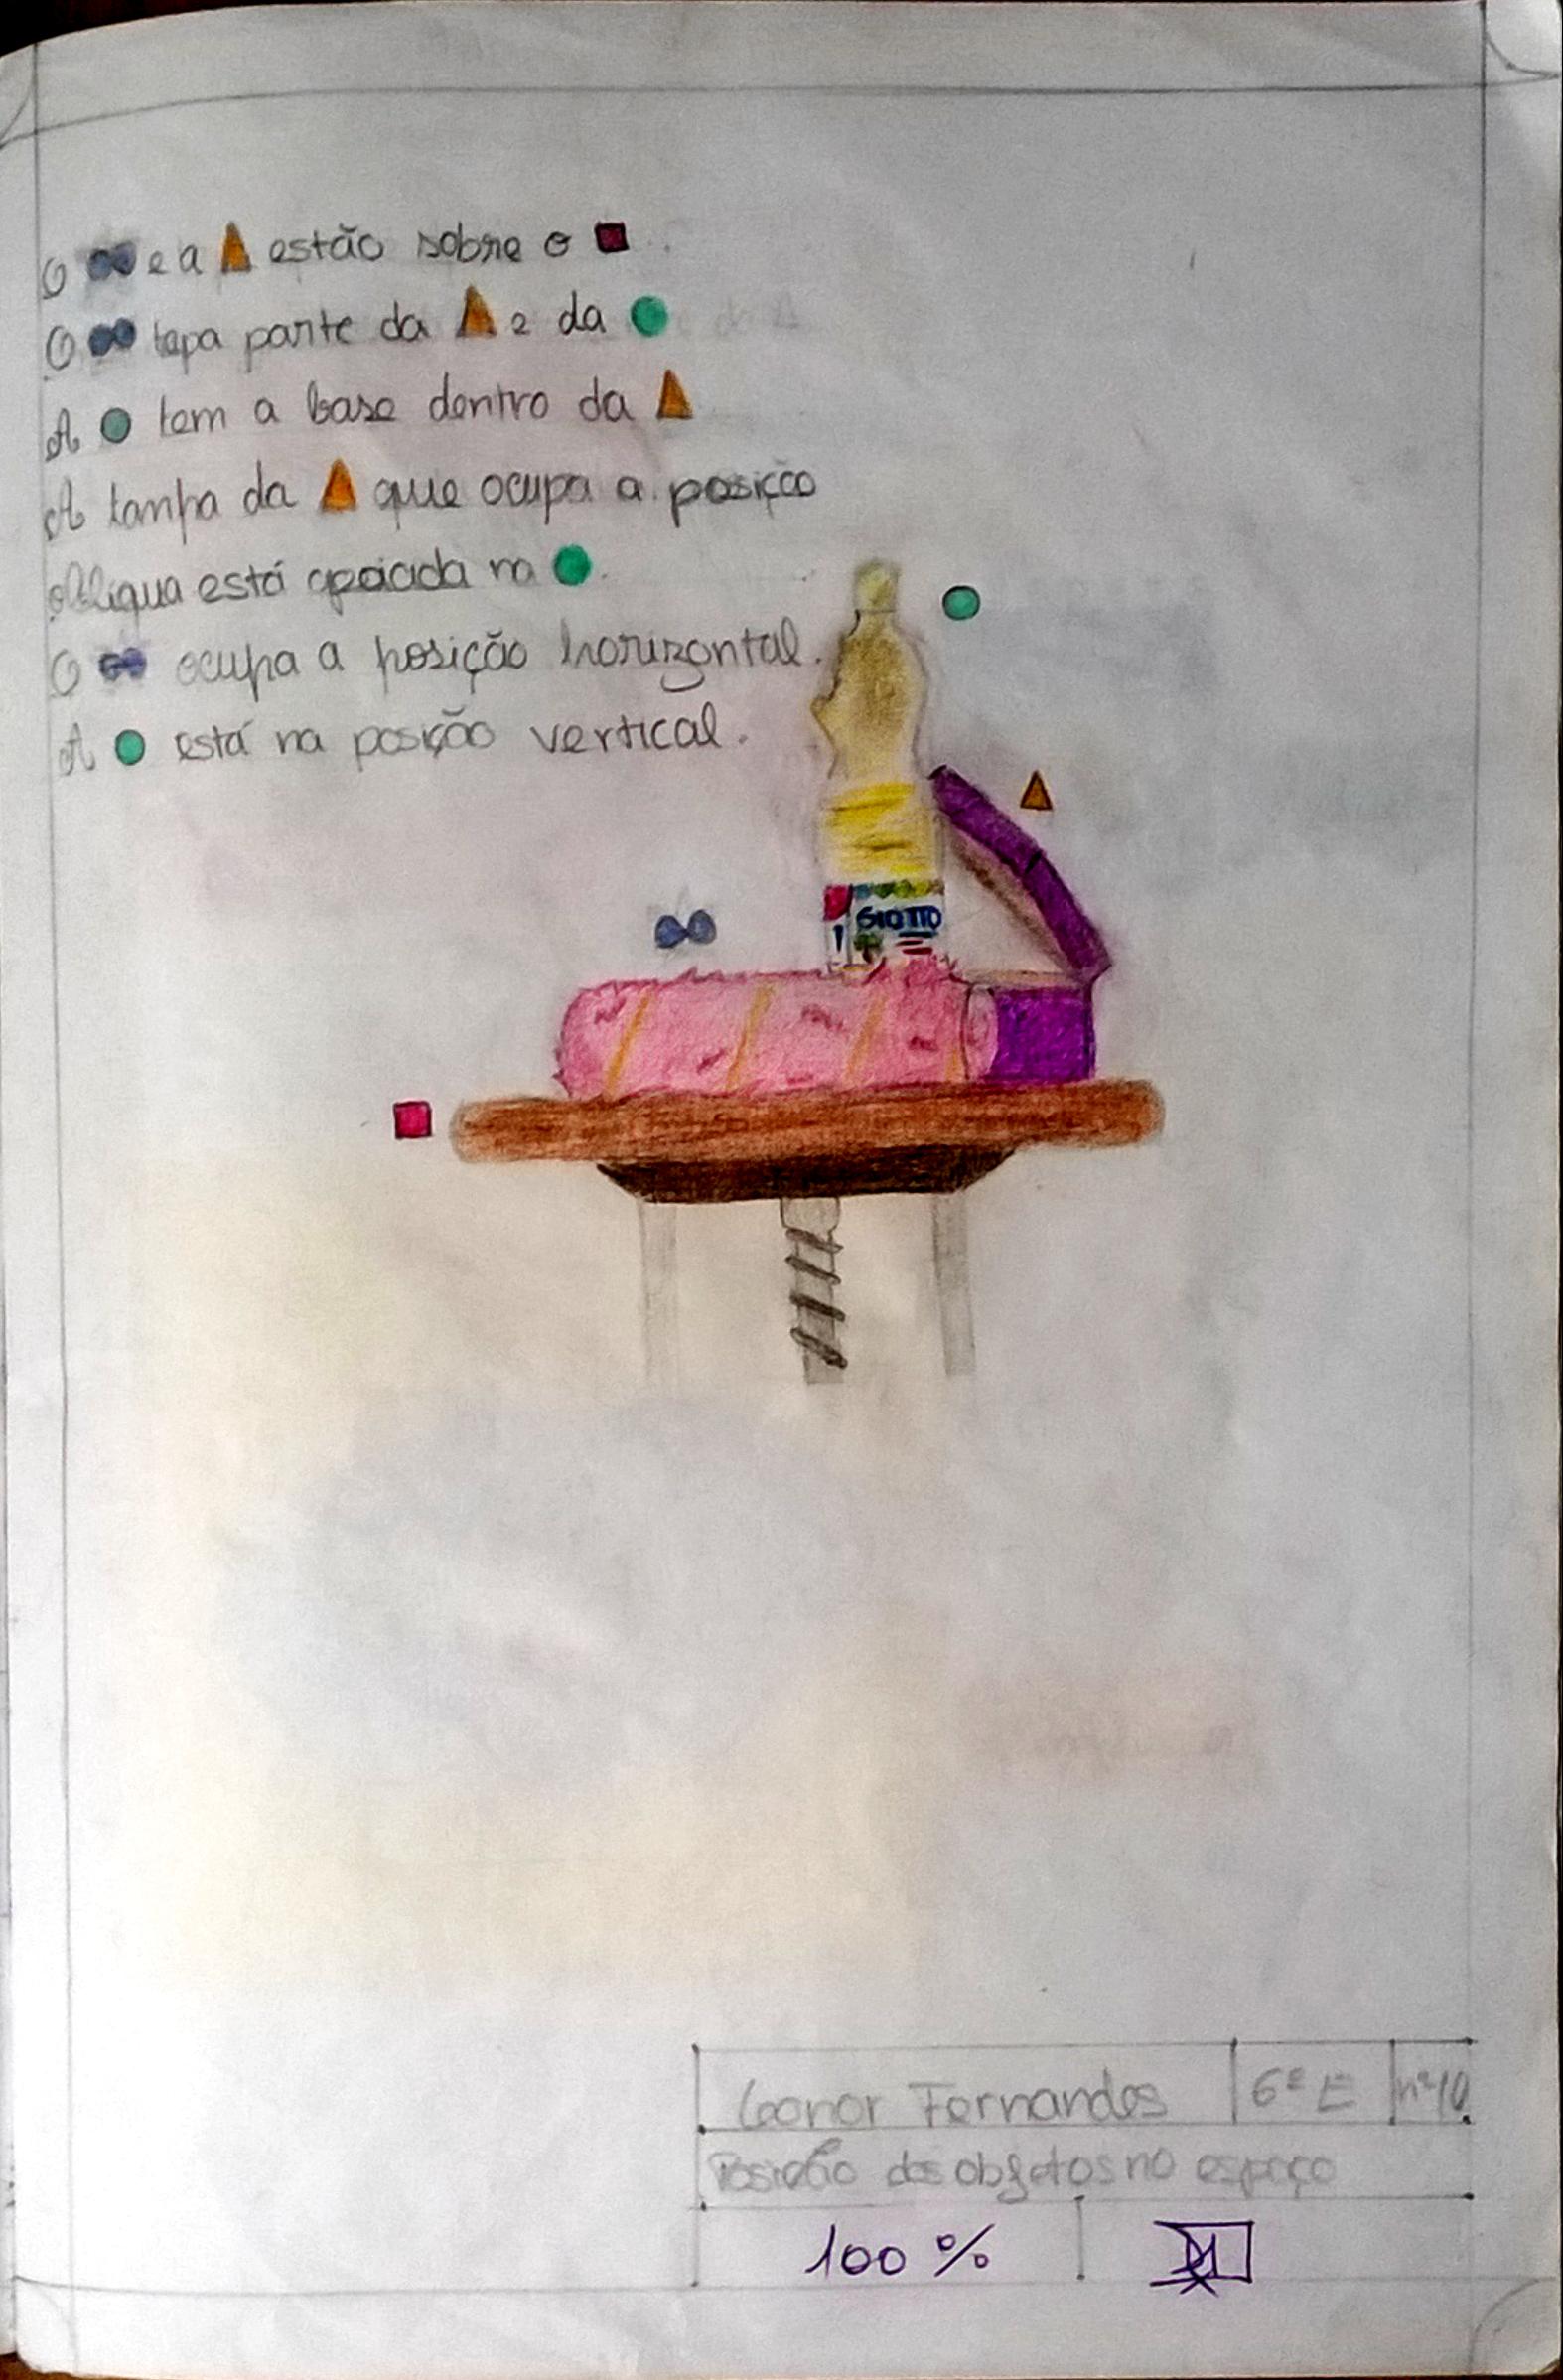 O e a estão sobre o
O tapa parte da e da
A tem a base dentro da
A tampa da que ocupa a posição
oblíqua está apoiada na
O ocupa a posição horizontal.
A está na posição vertical.
GIOTTO
Leonor Fernandes 6º E nº10
Posição dos objetos no espaço
100 %